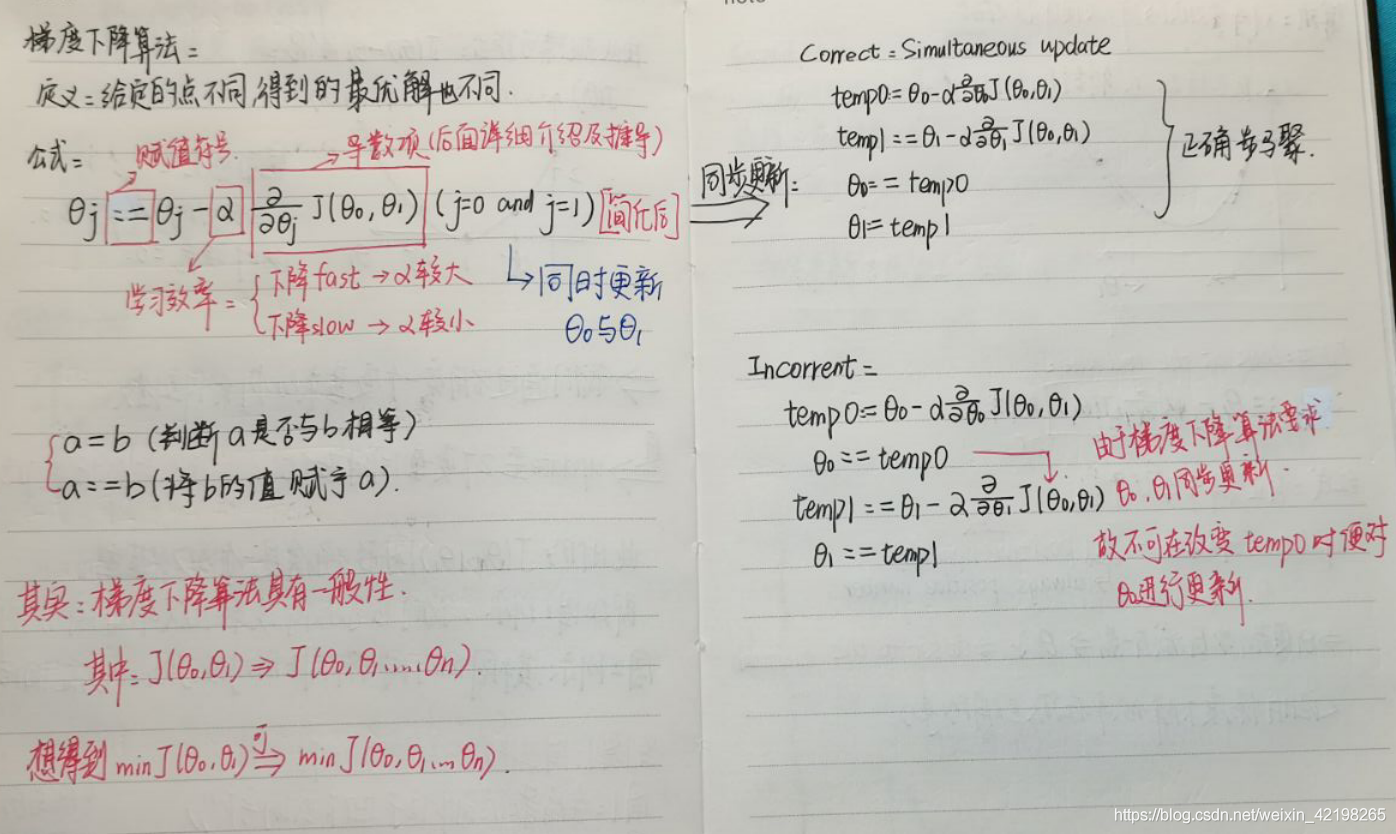 梯度下降算法:
定义:给定的点不同,得到的最优解也不同.
公式:
赋值符号
导数项(后面详细介绍及推导)
θj := θj - α ∂/∂θj J(θ0,θ1) (j=0 and j=1) [简化后]
学习效率:
下降fast → α较大
下降slow → α较小
同时更新
θ0与θ1
a = b (判断a是否与b相等)
a := b (将b的值赋予a).
其实:梯度下降算法具有一般性.
其中:J(θ0,θ1) ⇒ J(θ0,θ1,...,θn).
想得到 min J(θ0,θ1) ⇒ min J(θ0,θ1...θn).
同步更新:
Correct: Simultaneous update
temp0:= θ0-α ∂/∂θ0 J(θ0,θ1)
temp1:= θ1-α ∂/∂θ1 J(θ0,θ1)
θ0:= temp0
θ1:= temp1
正确步骤.
Incorrent:
temp0:= θ0-α ∂/∂θ0 J(θ0,θ1)
θ0:= temp0
temp1:= θ1-α ∂/∂θ1 J(θ0,θ1)
θ1:= temp1
由于梯度下降算法要求
θ0,θ1同步更新.
故不可在改变temp0时便对
θ0进行更新.
https://blog.csdn.net/weixin_42198265